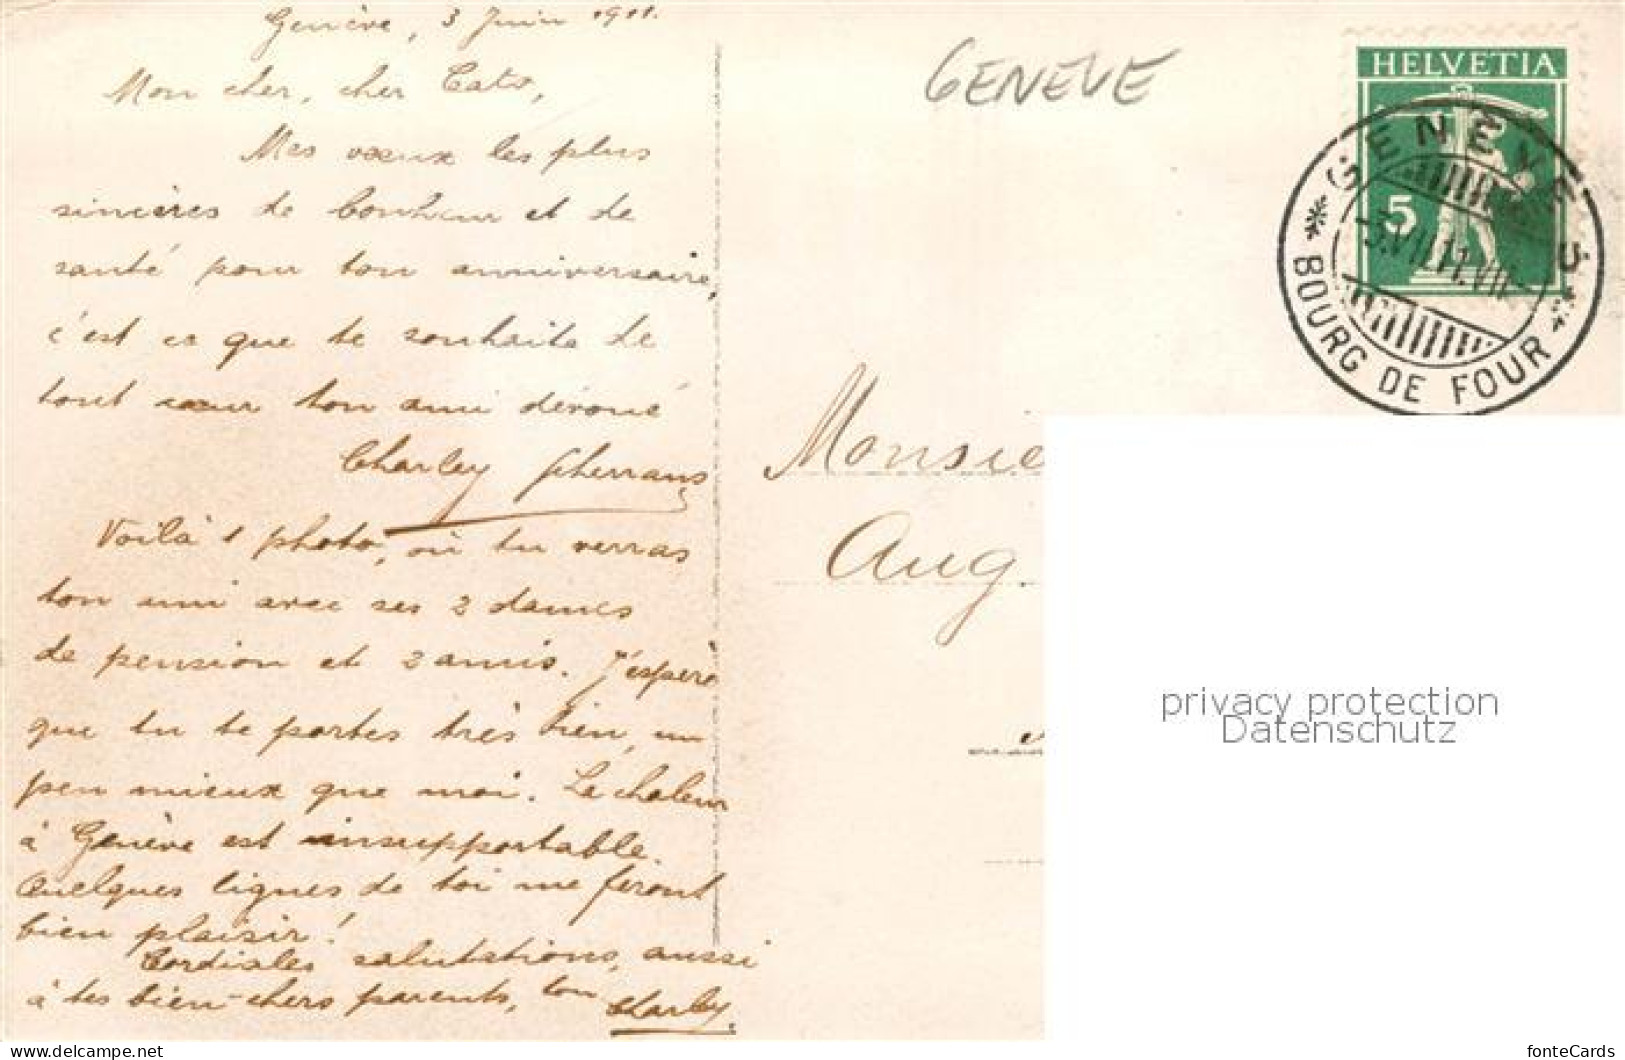 Genève, 3 Juin 1911.
Mon cher, cher Cato,
Mes vœux les plus
sincères de bonheur et de
santé pour ton anniversaire,
c'est ce que te souhaite de
tout cœur ton ami dévoué
Charley
Voilà 1 photo, où tu verras
ton ami avec ses 2 dames
de pension et 2 amis. J'espère
que tu te portes très bien, un
peu mieux que moi. La chaleur
à Genève est insupportable.
Quelques lignes de toi me feront
bien plaisir!
Cordiales salutations, aussi
à tes bien-chers parents, ton
Charley.
GENEVE
HELVETIA
5
GENÈVE 3
-3.VII.11.VII-
* BOURG DE FOUR *
Monsie
Aug.
privacy protection
Datenschutz
fonteCards